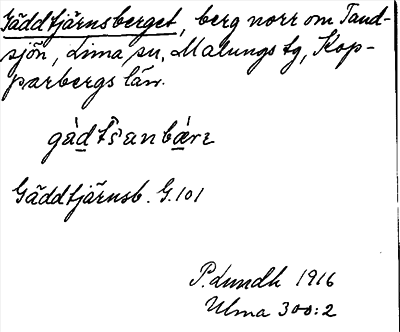 Gäddtjärnsberget, berg norr om Tand-
sjön, Lima sn, Malungs tg, Kop-
parbergs län.
gàdtšanbærı
Gäddtjärnsb. G. 101
P. Lundh 1916
Ulma 300:2